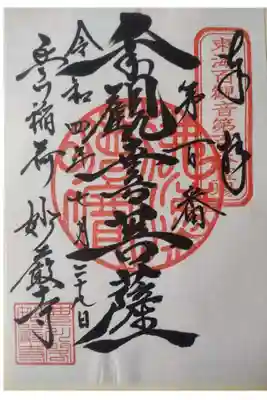 東海百観音第
奉拝
第百番
觀音菩薩
令和四年七月二十九日
豊川稲荷 妙嚴寺